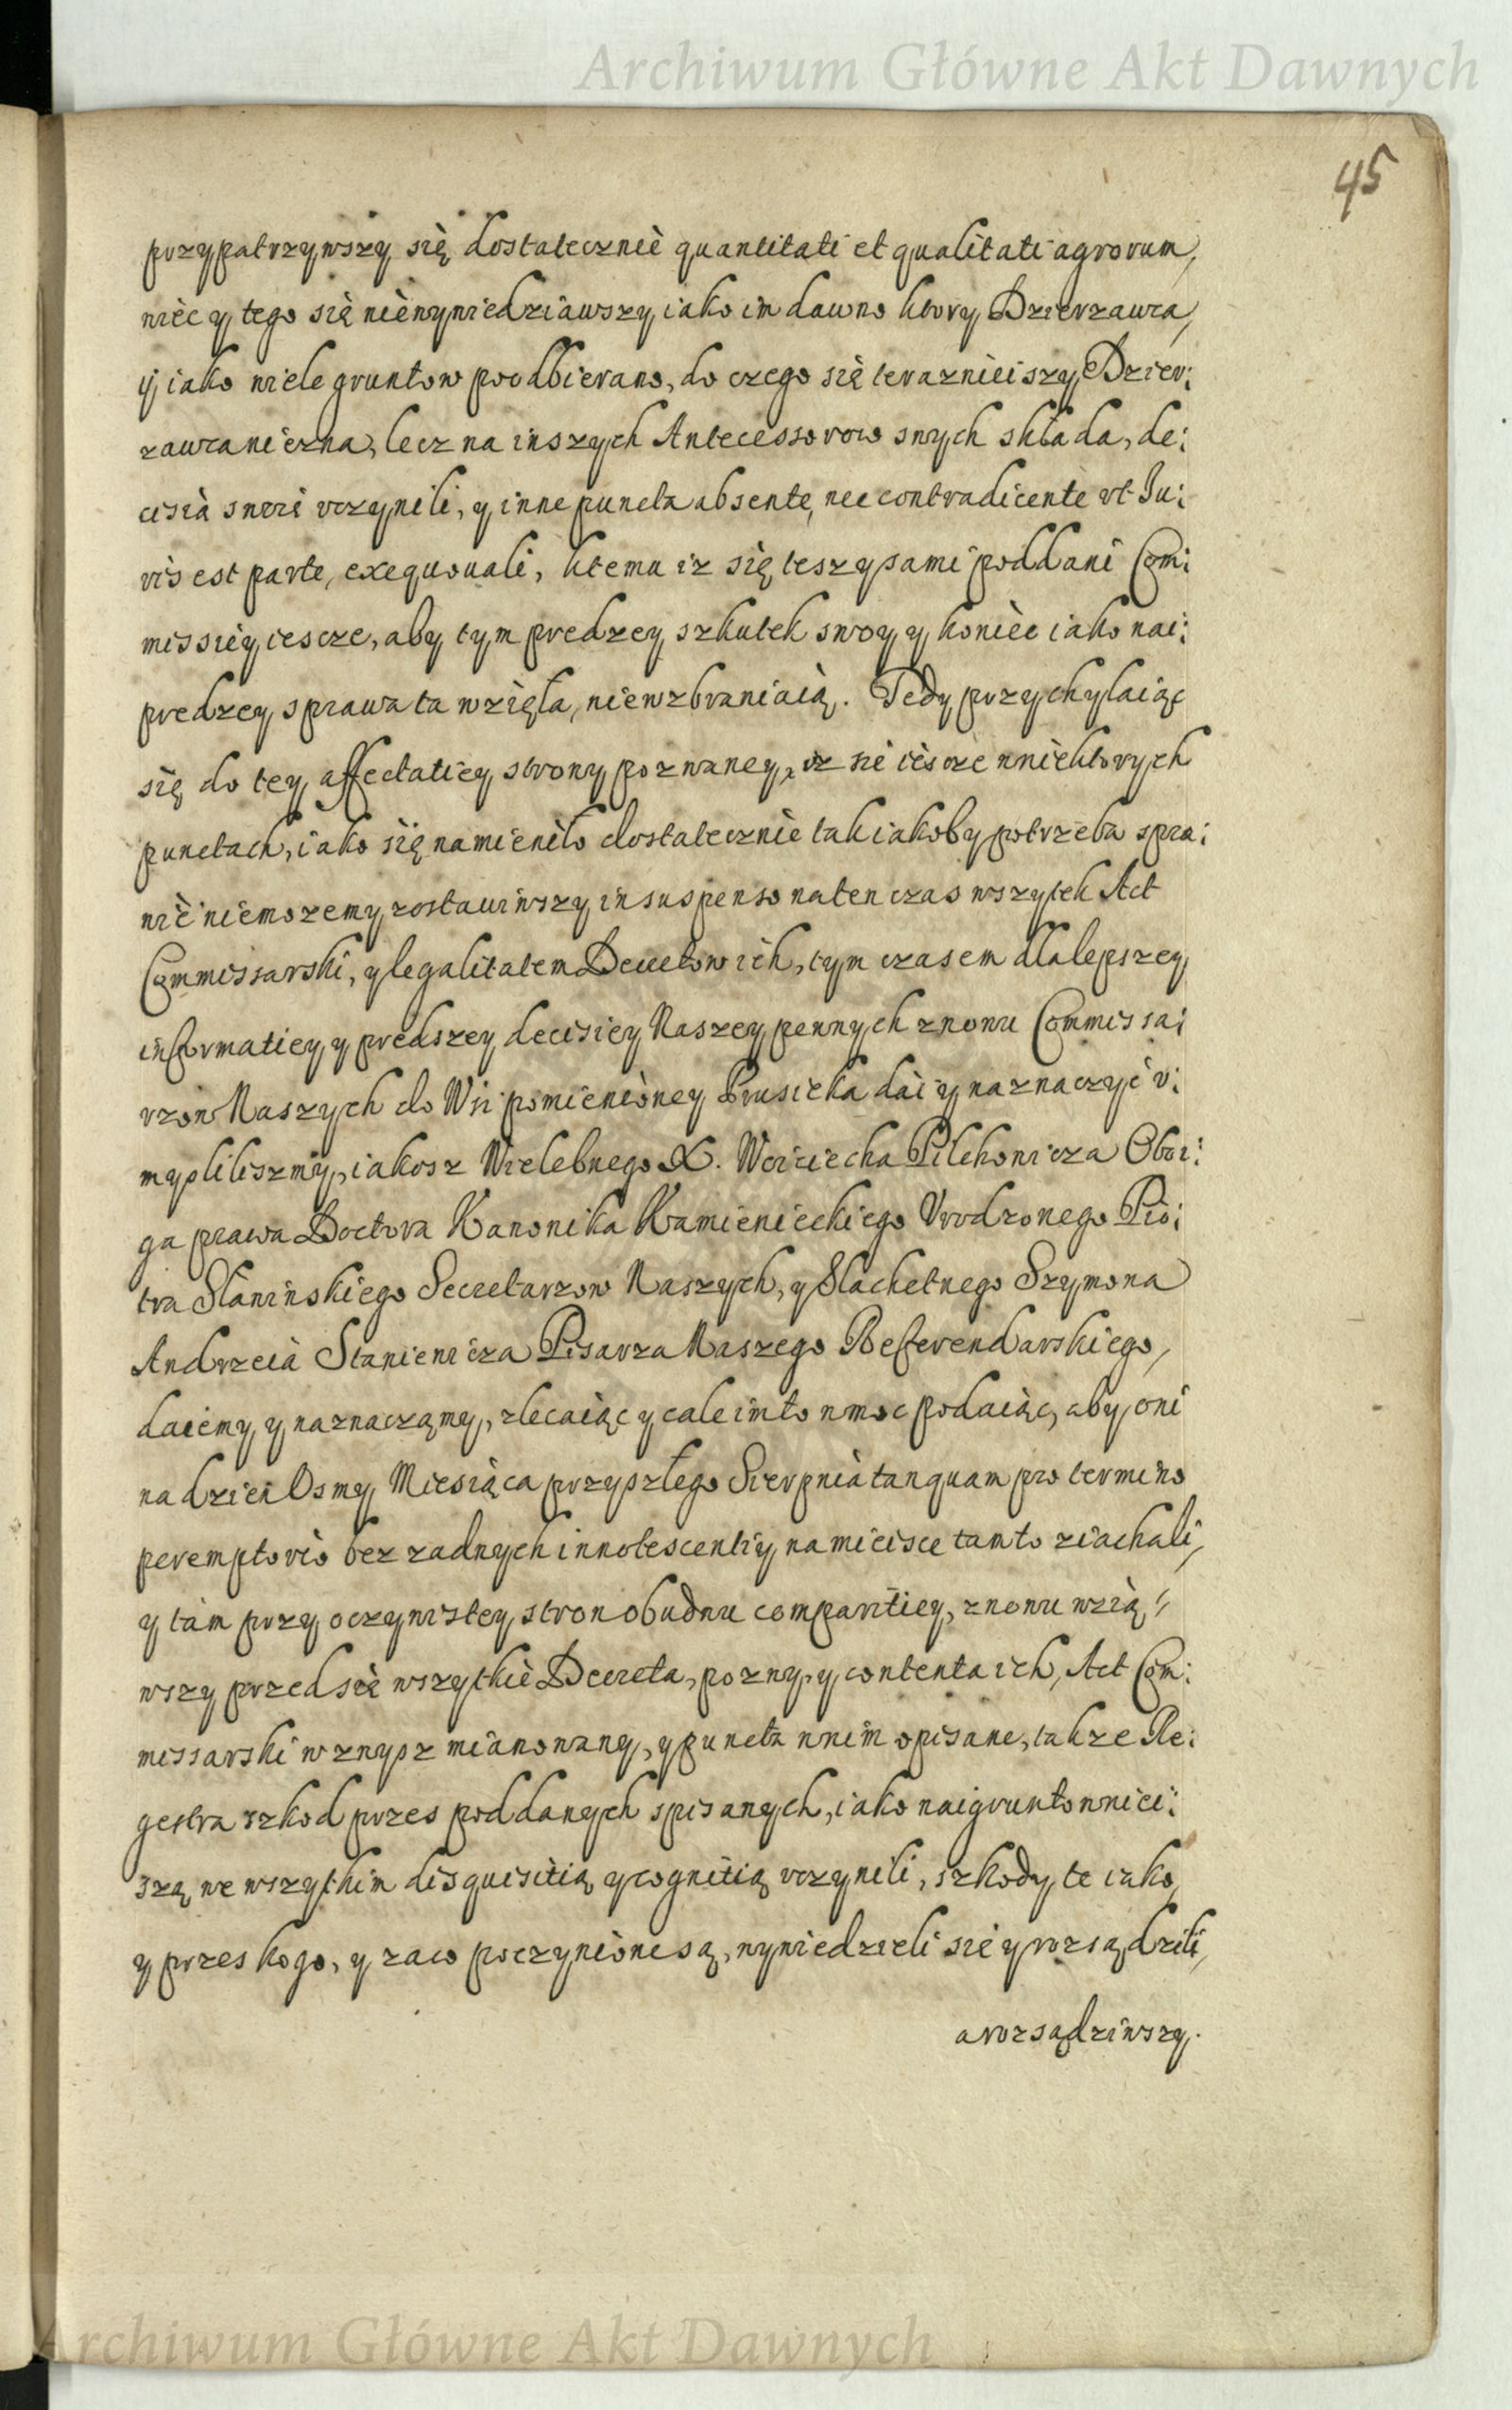 Archiwum Główne Akt Dawnych
45
przypatrzywszy się dostatecznie quantitati et qualitati agrorum,
wiec y tego się niewywiedziawszy iako im dawno ktory Dzierzawca,
ij iako wiele gruntow poodbierano, do czego się teraznieiszy Dzier:
zawca niezna, lecz na inszych Antecessorow swych składa, de:
cisią swoię vczynili, y inne puncta absente, nec contradicente vt Iu:
ris est parte, exequowali, ktemu iz się tesz y sami poddani Com:
missiey iescze, aby tym predzey szkutek swoy y koniec iako nai:
predzey sprawa ta wzięła, niewzbraniaią. Tedy przychylaiąc
się do tey affectatiey strony pozwaney, iz sie iescze wniektorych
punctach, iako się namieniło dostatecznie tak iakoby potrzeba spra:
wić niemozemy zostawiwszy in suspenso naten czas wszytek Act
Commissarski, y legalitatem Decretow ich, tym czasem dla lepszey
informatiey y predszey decisiey Naszey pewnych znowu Commissa:
rzow Naszych do Wsi pomienioney Prusieka dać y naznaczyć v:
myslilismy, iakosz Wielebnego X. Woiciecha Pilchowicza Oboi:
ga prawa Doctora Kanonika Kamienieckiego Vrodzonego Pio:
tra Słaninskiego Secretarzow Naszych, y Slachetnego Szymona
Andrzeia Staniewicza Pisarza Naszego Referendarskiego,
daiemy y naznaczamy, zlecaiąc y cale im to w moc podaiąc, aby oni
na dzien Osmy Miesiąca przyszłego Sierpnia tanquam pro termino
peremptorio bez zadnych innotescentiy na mieisce tamto ziachali,
y tam przy oczywistey stron obudwu comparitiey, znowu wzią:
wszy przed się wszytkie Decreta, pozwy, y contenta ich, Act Com:
missarski wzwysz mianowany, y puncta w nim opisane, takze Re:
gestra szkod przes poddanych spisanych, iako naigruntowniei:
szą we wszytkim disquisitią y cognitią vczynili, szkody te iako,
y przes kogo, y zaco poczynione są, wywiedzieli się y rozsądzili,
a rozsądziwszy.
Archiwum Główne Akt Dawnych